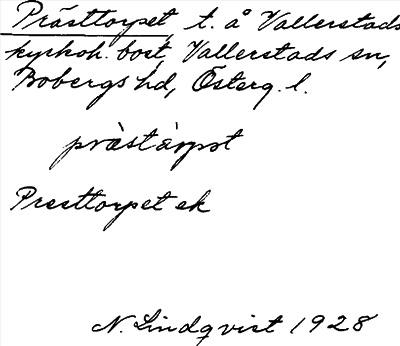 Prästtorpet, t. å Vallerstads
kyrkoh. bost, Vallerstads sn,
Bobergs hd, Österg. l.
prä̀stàrpət
Presttorpet ek
N. Lindqvist 1928